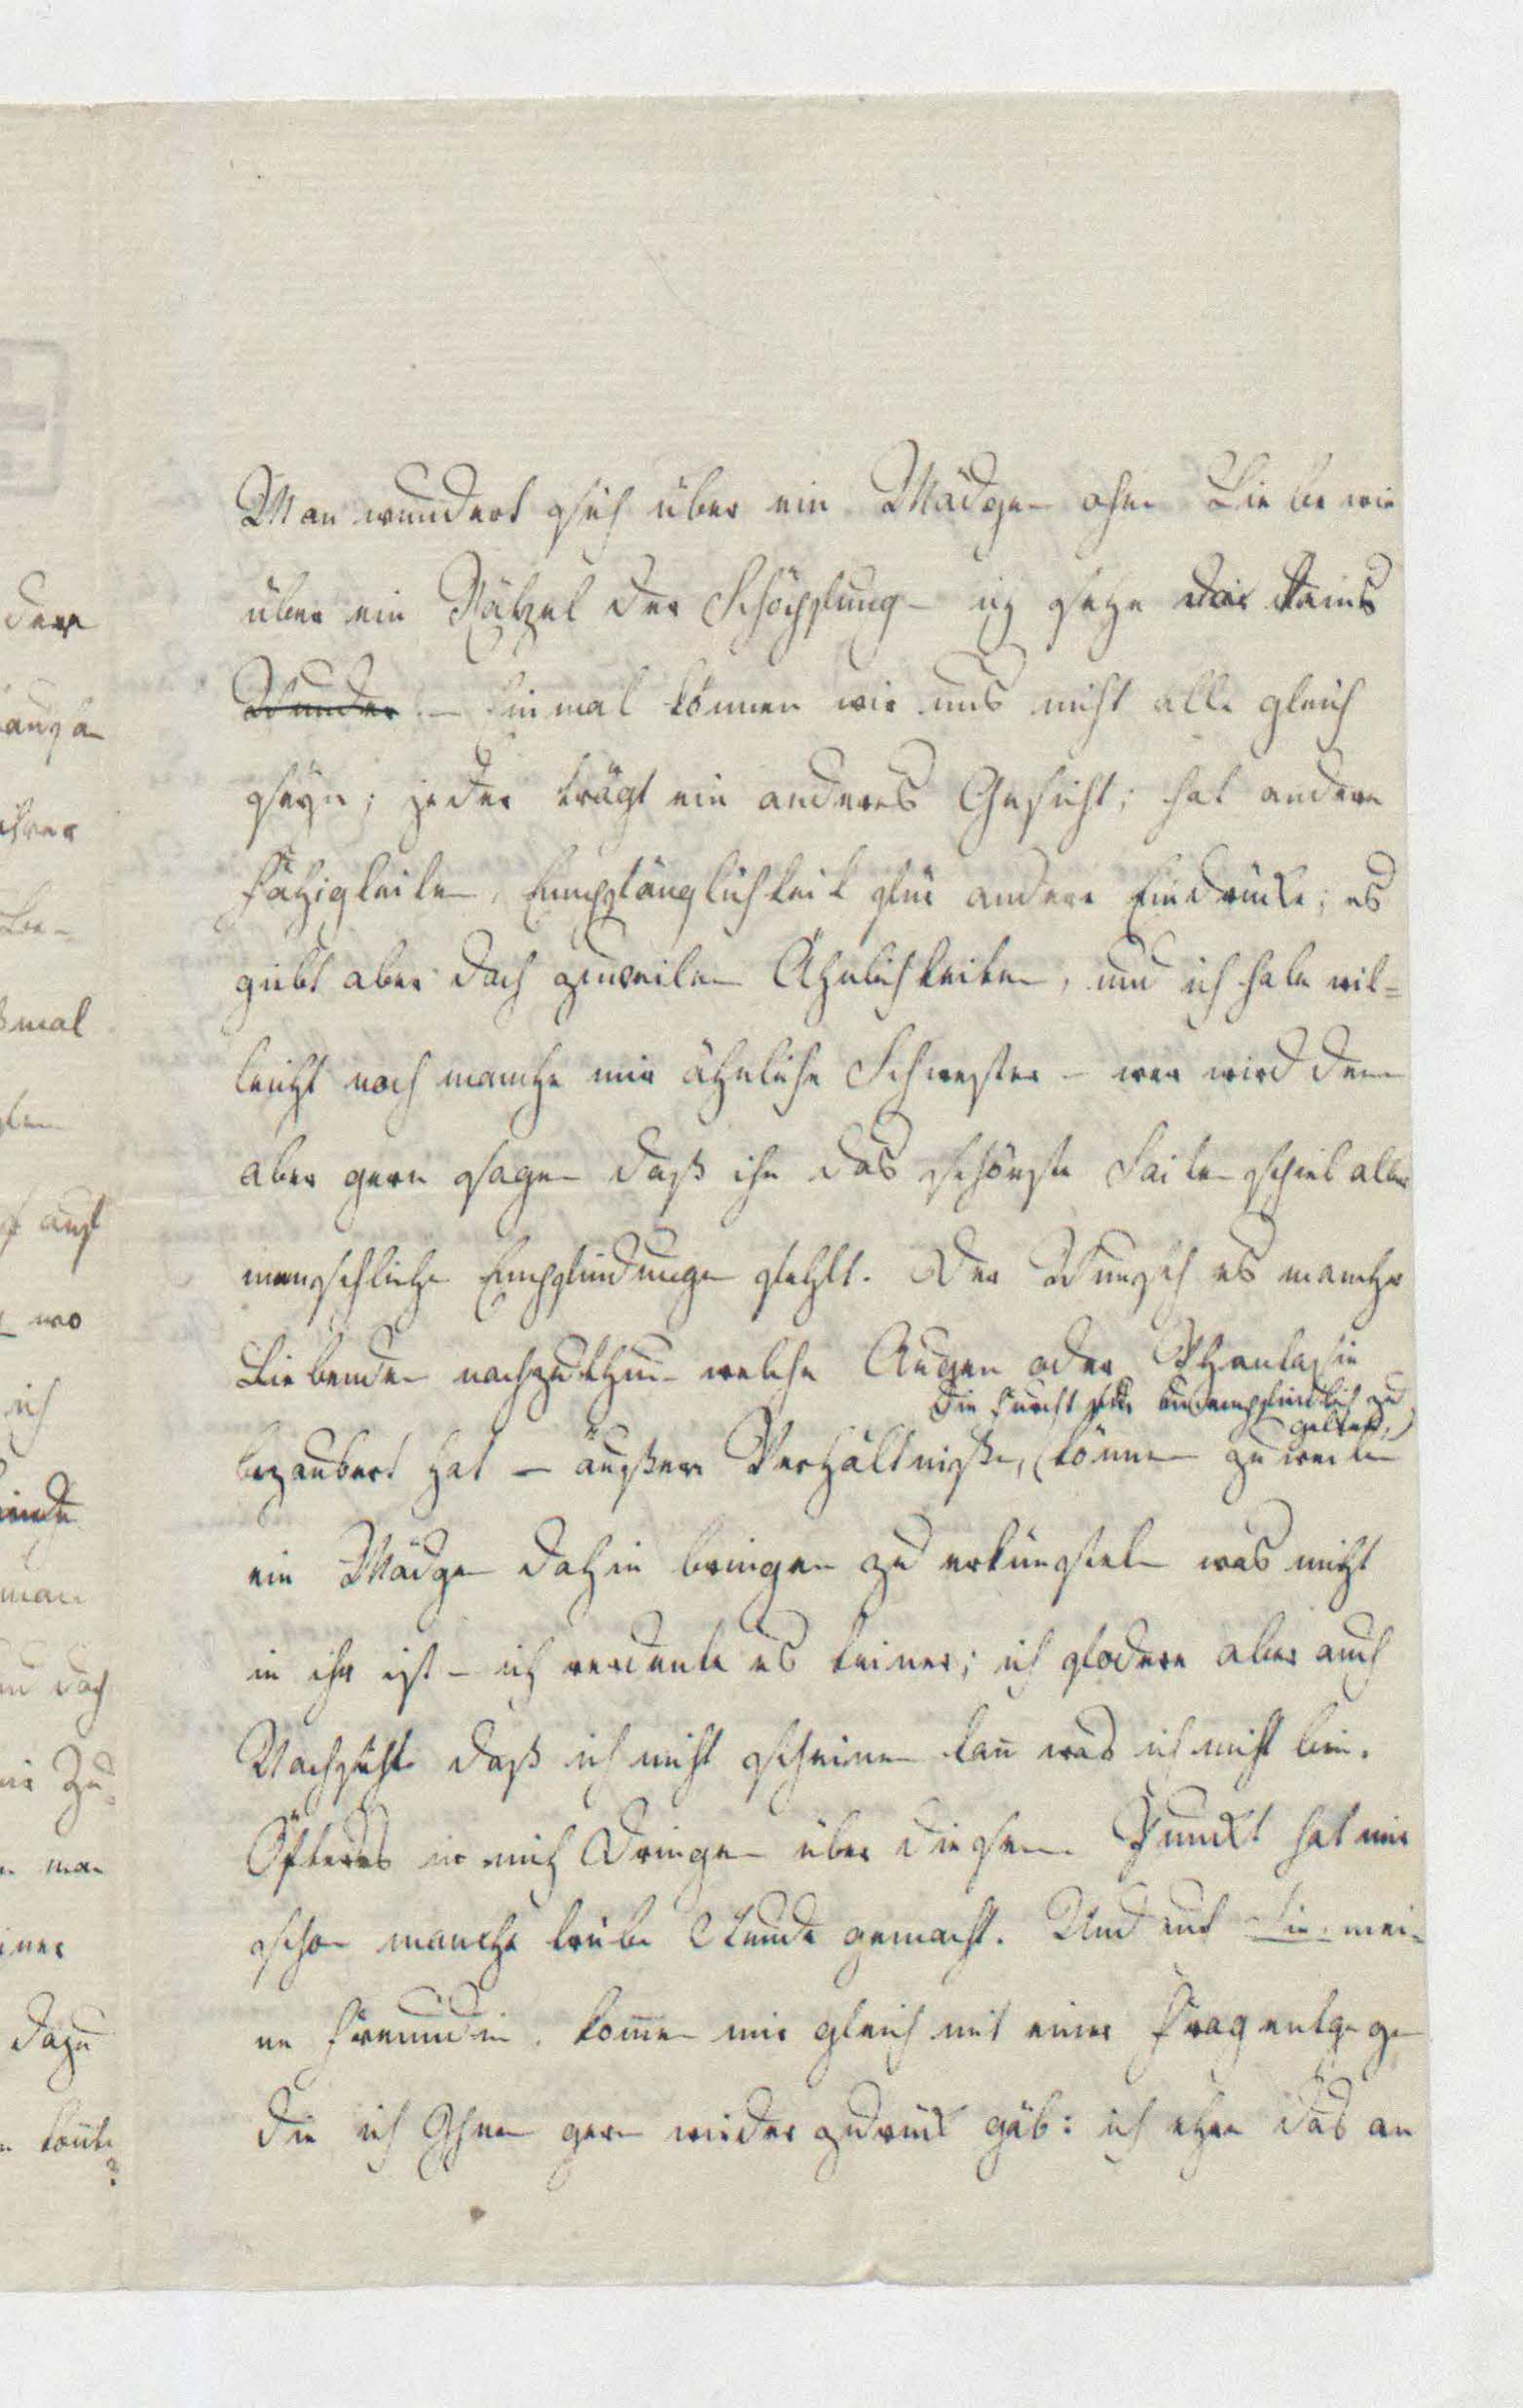 Man wundert sich über ein Mädgen ohne Liebe wie
über ein Räthzel der Schöpfung – ich sehe da keins
Wunder. – Einmal können wir uns nicht alle gleich
seyn; jeder trägt ein anderes Gesicht; hat andere
Fähigkeiten, Empfänglichkeit für andere Eindrücke; es
giebt aber doch zuweilen Ähnlichkeiten, und ich habe viel=
leicht noch manche mir ähnliche Schwester – wer wird denn
aber gern sagen daß ihr das schönste Saitenspiel aller
menschliche Empfindungen fehlt. Der Wunsch es mancher
Liebenden nachzuthun welche Augen oder Phantasie
die Furcht für unempfindlich zu
gelten,
bezaubert hat – äußere Verhältniße, können zuweilen
ein Mädgen dahin bringen zu erkünsteln was nicht
in ihr ist – ich verdenk es keiner; ich fodere aber auch
Nachsicht daß ich nicht scheinen kan was ich nicht bin.
Öfteres in mich Dringen über diesen Punckt hat mir
schon manche trübe Stunde gemacht. Und auch Sie mei=
ne Freundin, komen mir gleich mit einer Frag entgegen
die ich Ihnen gern wieder zurück gäb: ich ehre das an
dere
mal
auf
wo
ich
man
doch
zu
man
einer
dazu
könte
?